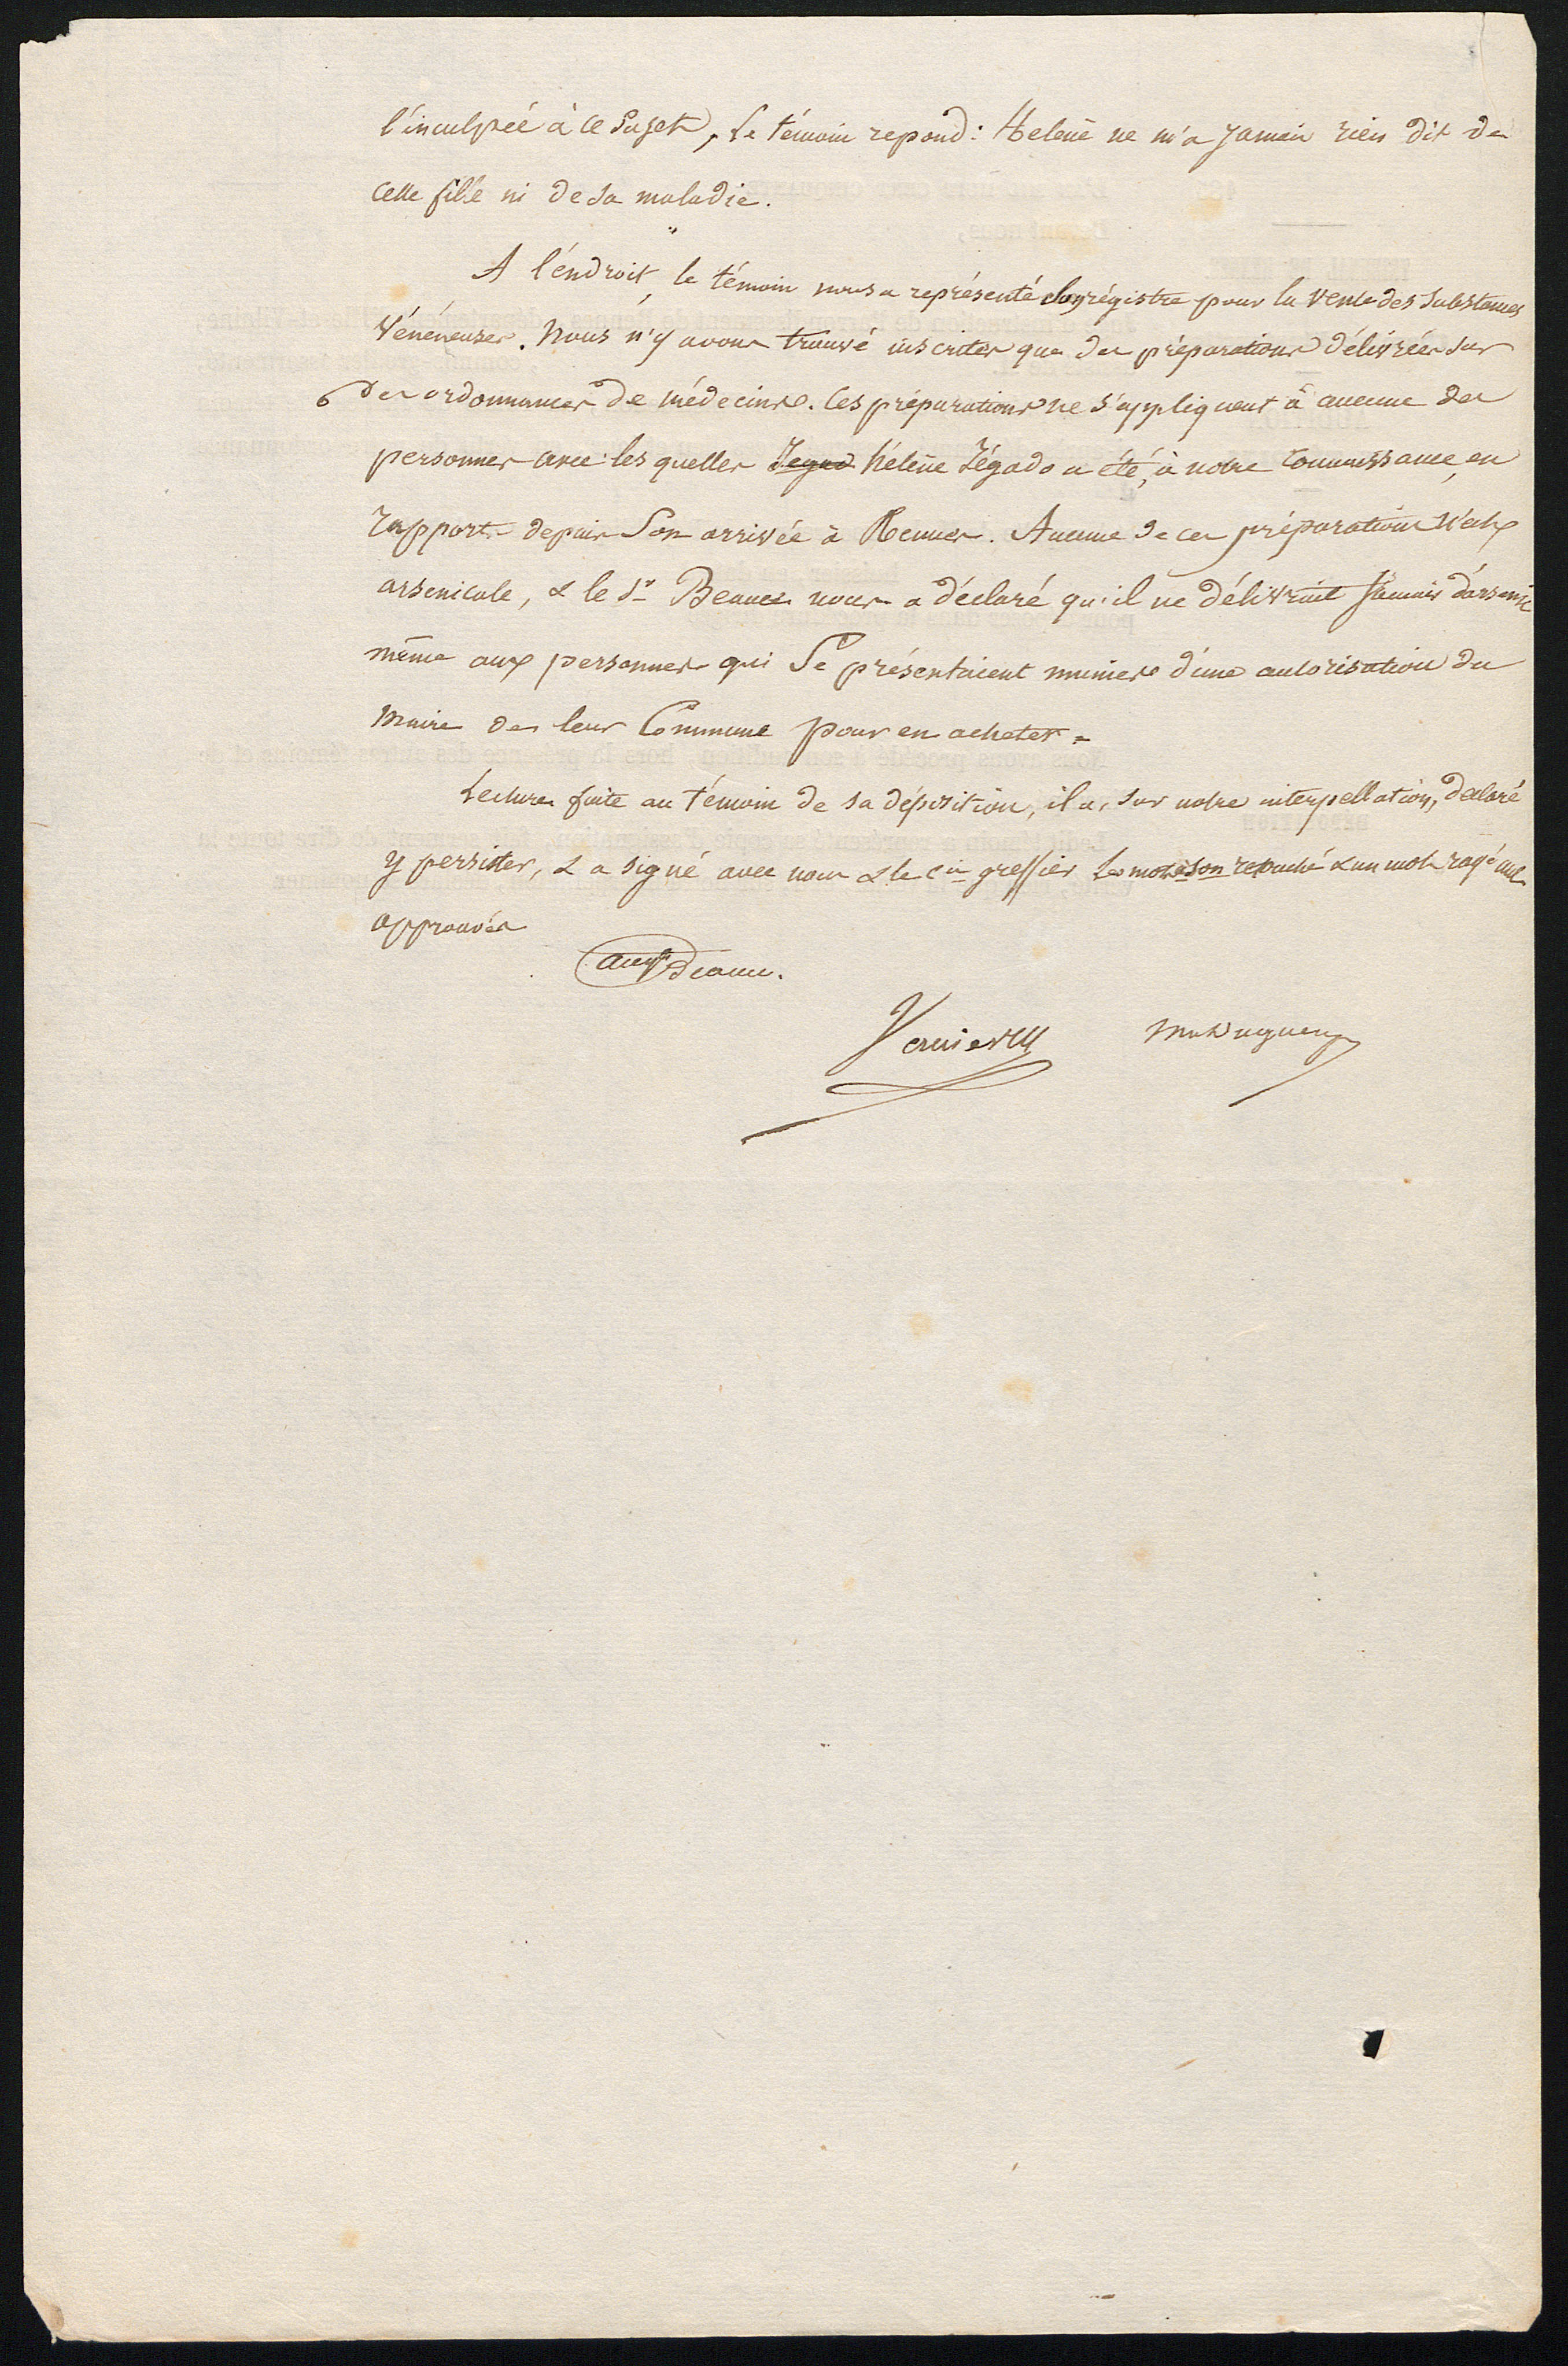 l'inculpée à ce sujet, le témoin repond: Helène ne m'a jamais rien dit de
cette fille ni de sa maladie.
A l'endroit, le témoin nous a représenté son régistre pour la vente des substances
vénéneuses. Nous n'y avons trouvé inscrites que des préparations délivrées sur
des ordonnances de médecins. Ces préparations ne s'appliquent à aucune des
personnes avec les quelles Jegad hélène Jégado a été, à notre connaissance, en
rapport depuis son arrivée à Rennes. Aucune de ces préparations n'est
arsenicale, & le Sr nous a déclaré qu'il ne délivrait jamais d'arsenic
même aux personnes qui se présentaient munies d'une autorisation du
maire de leur Commune pour en acheter.
Lecture faite au témoin de sa déposition, il a, sur notre interpellation, déclaré
y persister, & a signé avec nous & le cis greffier les mots son retouché & un mot rayé nul
approuvés